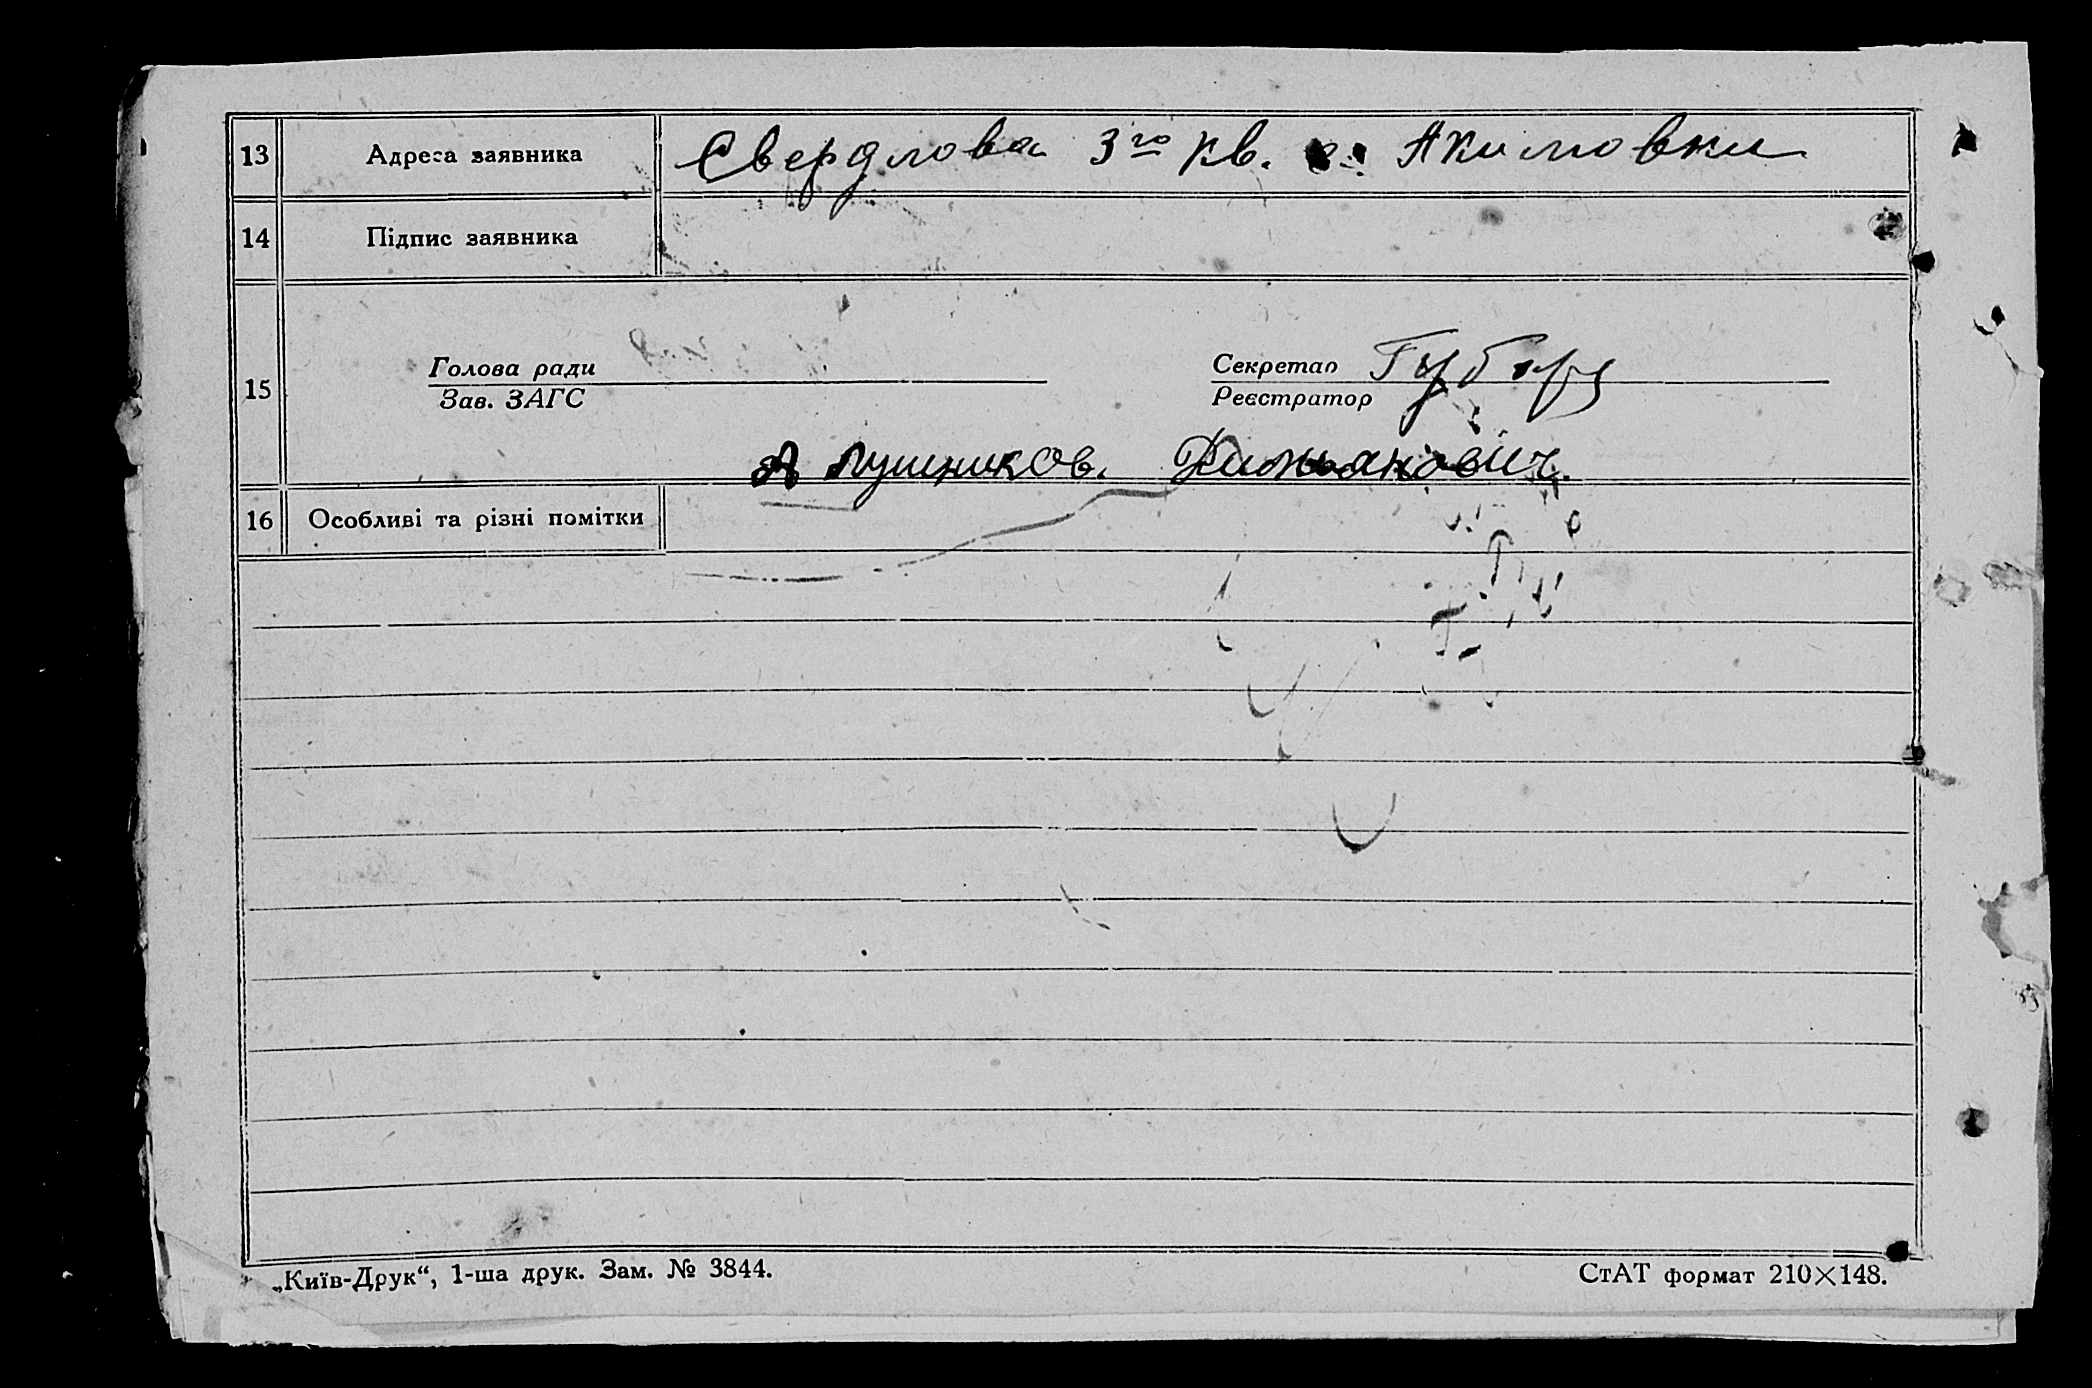 13 Адреса заявника Свердлова 3го кв. с. Акимовки
14 Підпис заявника
15 Голова ради Секретар
Зав. ЗАГС Реєстратор
А Лушников.
16 Особливі та різні помітки
„Київ-Друк“, 1-ша друк. Зам. № 3844. СтАТ формат 210×148.